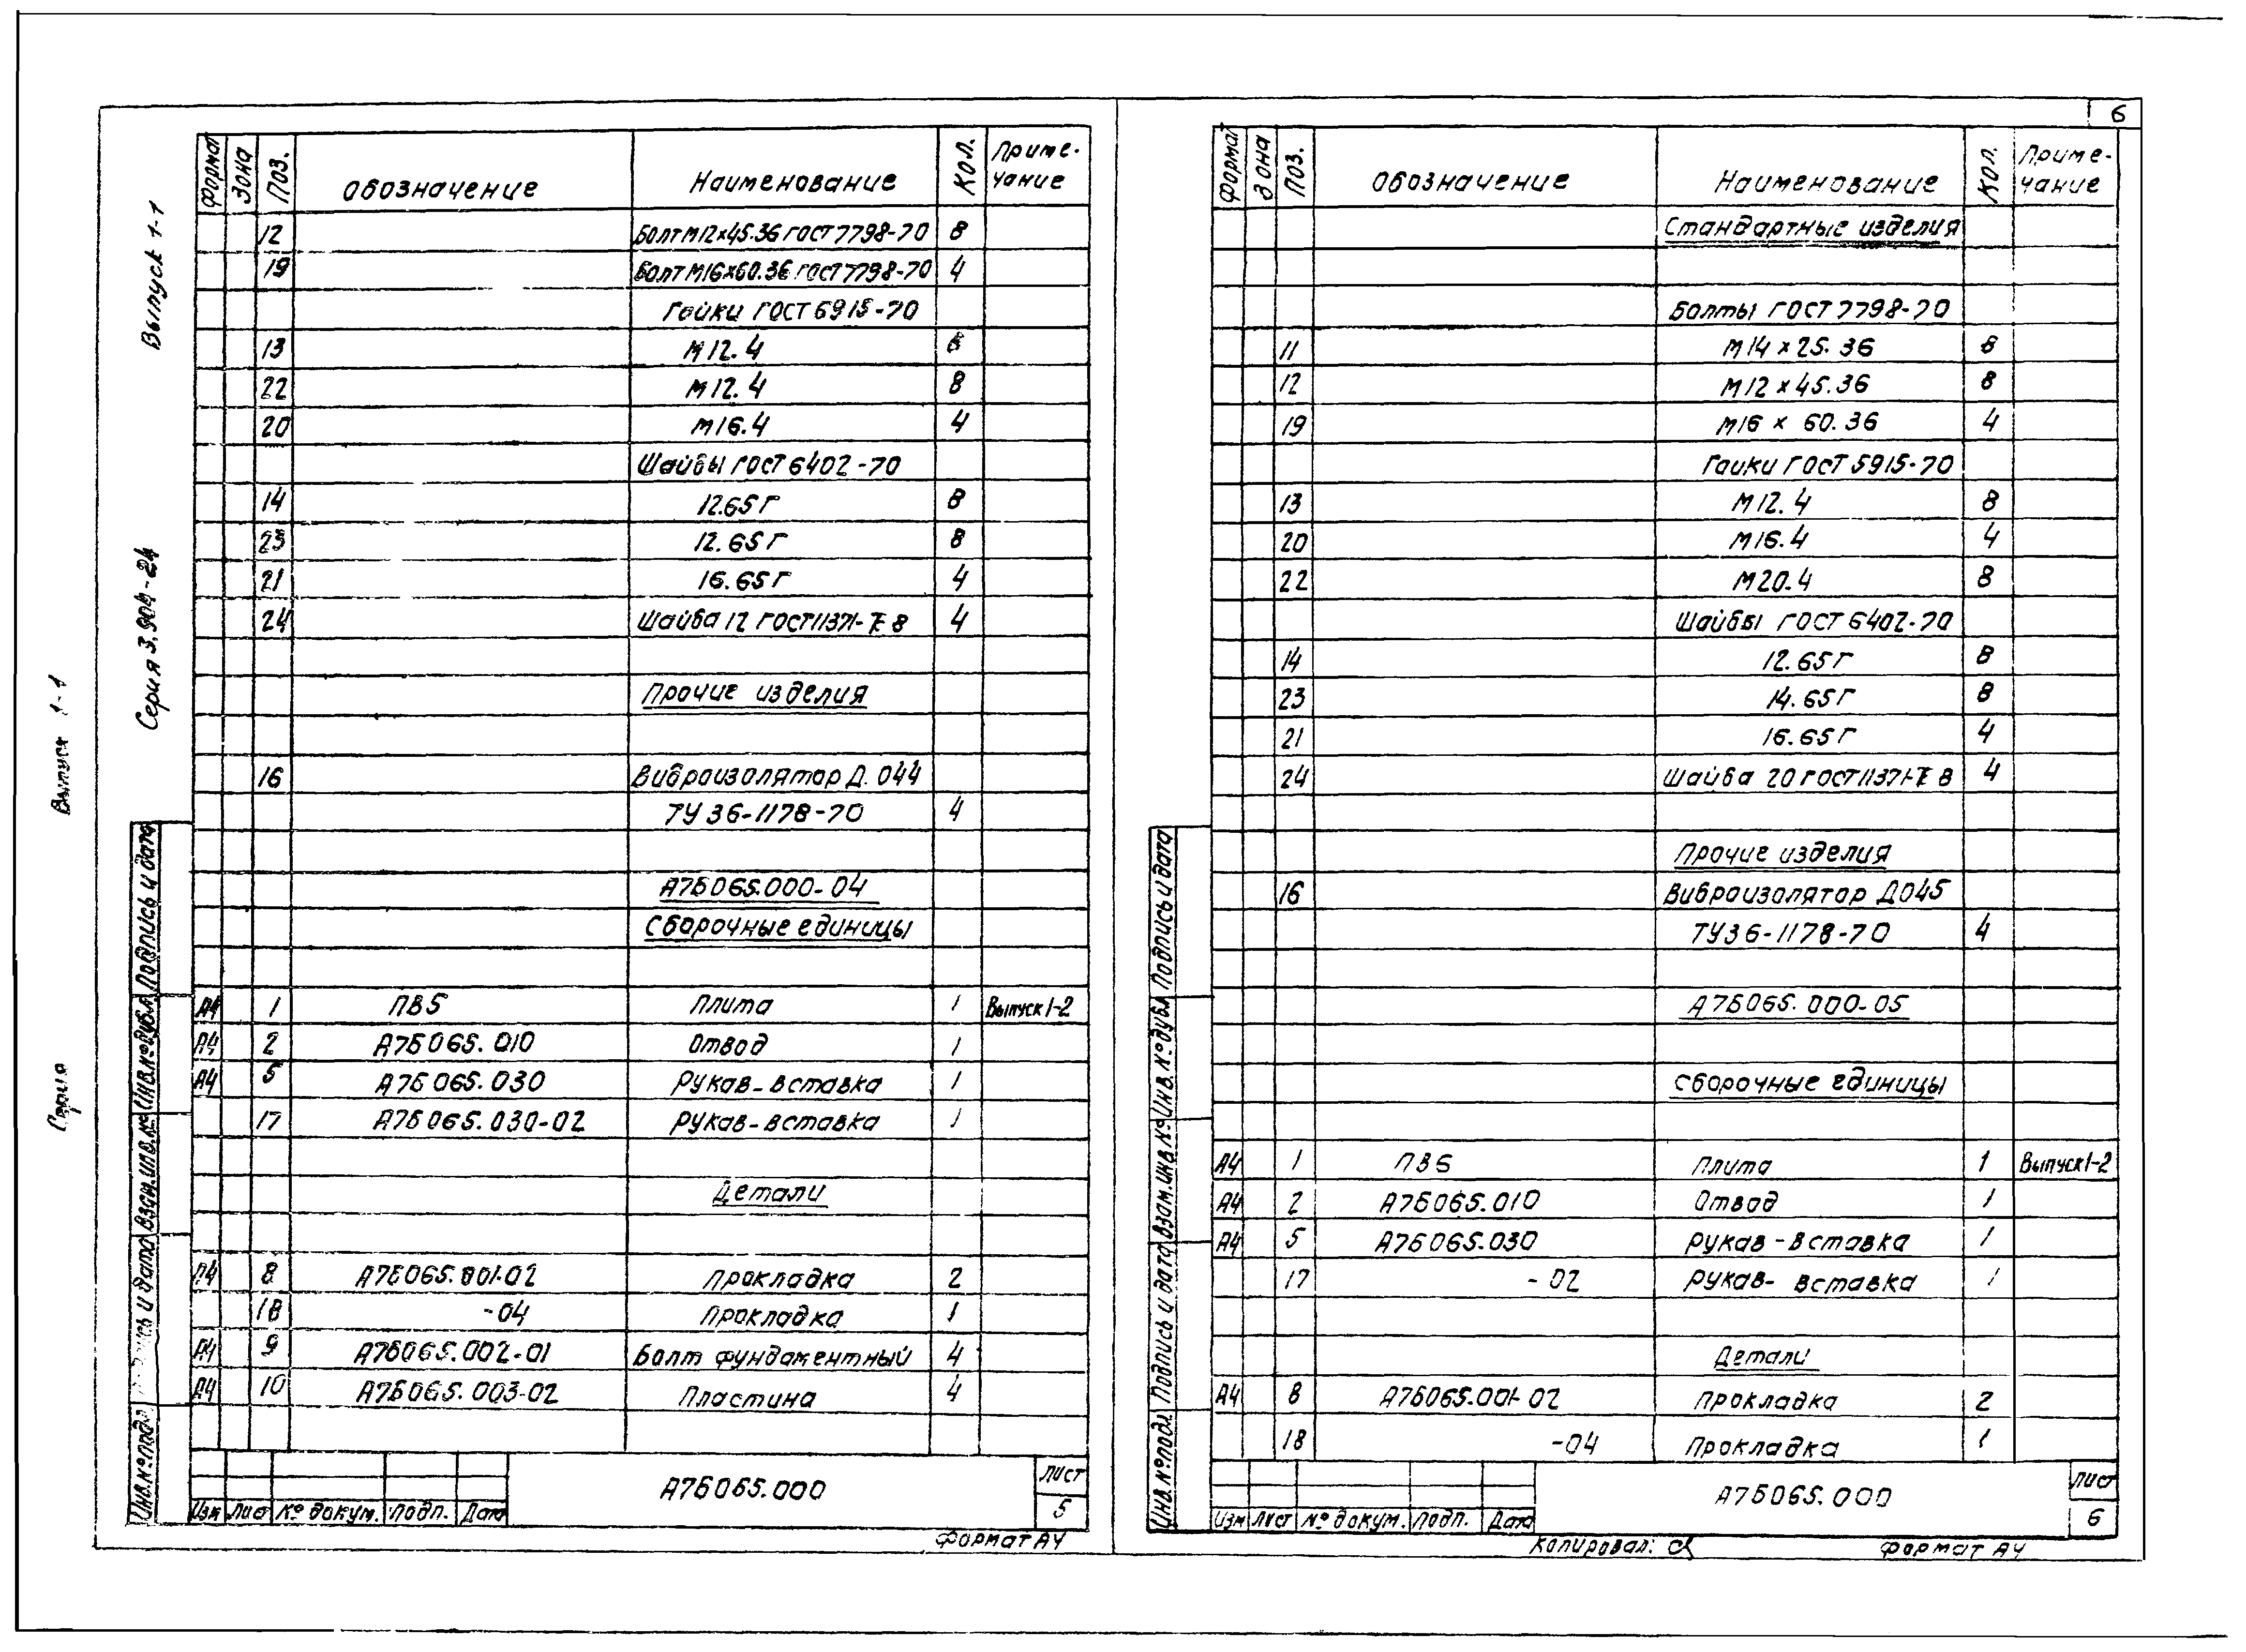 6
Выпуск 1-1
Серия 3.904-24
Выпуск 1-1
Серия
Формат Зона Поз. Обозначение Наименование Кол. Приме-
чание
12 Болт М12х45.36 ГОСТ 7798-70 8
19 Болт М16х60.36 ГОСТ 7798-70 4
Гайки ГОСТ 5915-70
13 М12.4 8
22 М12.4 8
20 М16.4 4
Шайбы ГОСТ 6402-70
14 12.65Г 8
23 12.65Г 8
21 16.65Г 4
24 Шайба 12 ГОСТ 11371-78 4
Прочие изделия
16 Виброизолятор Д.044
ТУ 36-1178-70 4
А7Б065.000-04
Сборочные единицы
А4 1 ПВ5 Плита 1 Выпуск 1-2
А4 2 А7Б065.010 Отвод 1
А4 5 А7Б065.030 Рукав-вставка 1
17 А7Б065.030-02 Рукав-вставка 1
Детали
А4 8 А7Б065.001-02 Прокладка 2
18 -04 Прокладка 1
А4 9 А7Б065.002-01 Болт фундаментный 4
А4 10 А7Б065.003-02 Пластина 4
А7Б065.000
Лист
5
Изм Лист № докум. Подп. Дата
Формат А4
Инв.№подл. Подпись и дата Взам.инв.№ Инв.№дубл. Подпись и дата
Формат Зона Поз. Обозначение Наименование Кол. Приме-
чание
Стандартные изделия
Болты ГОСТ 7798-70
11 М14 х 25.36 8
12 М12 х 45.36 8
19 М16 х 60.36 4
Гайки ГОСТ 5915-70
13 М12.4 8
20 М16.4 4
22 М20.4 8
Шайбы ГОСТ 6402-70
14 12.65Г 8
23 14.65Г 8
21 16.65Г 4
24 Шайба 20 ГОСТ 11371-78 4
Прочие изделия
16 Виброизолятор Д045
ТУ36-1178-70 4
А7Б065.000-05
Сборочные единицы
А4 1 ПВ6 Плита 1 Выпуск 1-2
А4 2 А7Б065.010 Отвод 1
А4 5 А7Б065.030 Рукав-вставка 1
17 -02 Рукав-вставка 1
Детали
А4 8 А7Б065.001-02 Прокладка 2
18 -04 Прокладка 1
А7Б065.000
Лист
6
Изм Лист № докум. Подп. Дата
Копировал:
Формат А4
Инв.№подл. Подпись и дата Взам.инв.№ Инв.№дубл. Подпись и дата